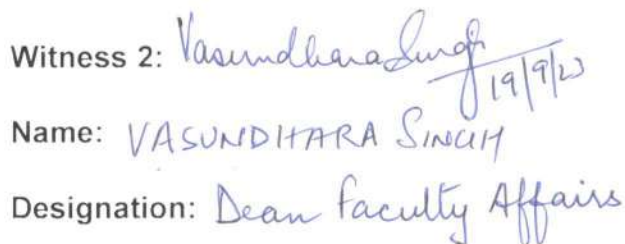 Witness 2: Vasundhara Singh
19/9/23
Name: VASUNDHARA SINGH
Designation: Dean Faculty Affairs